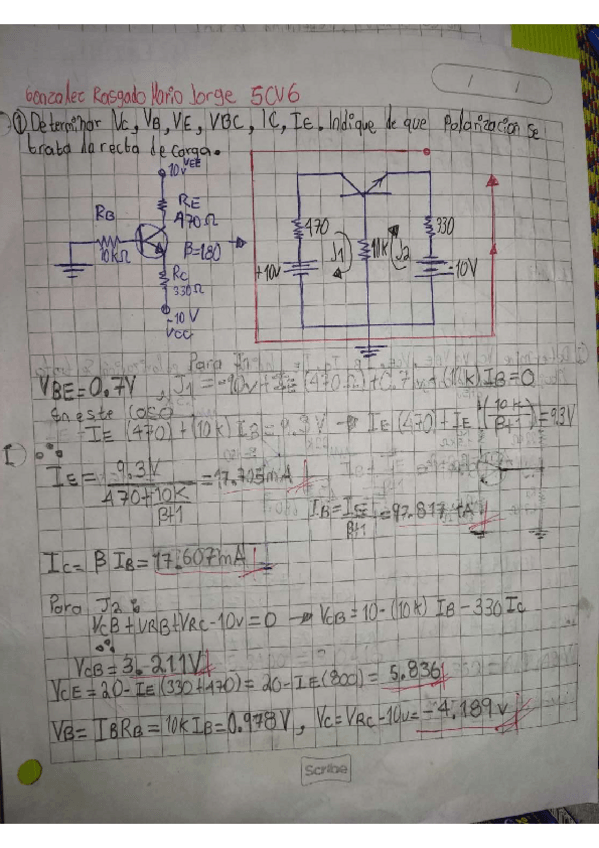 Gonzalez Rasgado Mario Jorge 5CV6
① Determinar Vc, VB, VE, VBC, IC, IE. Indique de que Polarizacion se
trata la recta de carga.
10V VEE
RE
470Ω
RB
10kΩ
β=180
RC
330Ω
-10V
VCC
470
10k
330
J1
J2
+10v
-10V
Para J1
VBE=0.7V, J1=-10v+IE(470Ω)+0.7v+(10k)IB=0
En este caso
IE(470)+(10k)IB=9.3V → IE(470)+IE(10k/β+1)=9.3V
∴
IE=9.3V/(470+10k/β+1)=17.705mA
IB=IE/β+1=97.817μA
Ic=βIB=17.607mA
Para J2:
VCB+VRB+VRC-10v=0 → VCB=10-(10k)IB-330Ic
∴
VCB=3.211V
VCE=20-IE(330+470)=20-IE(800)=5.836
VB=IBRB=10kIB=0.978V, Vc=VRC-10v=-4.189v
Scribe